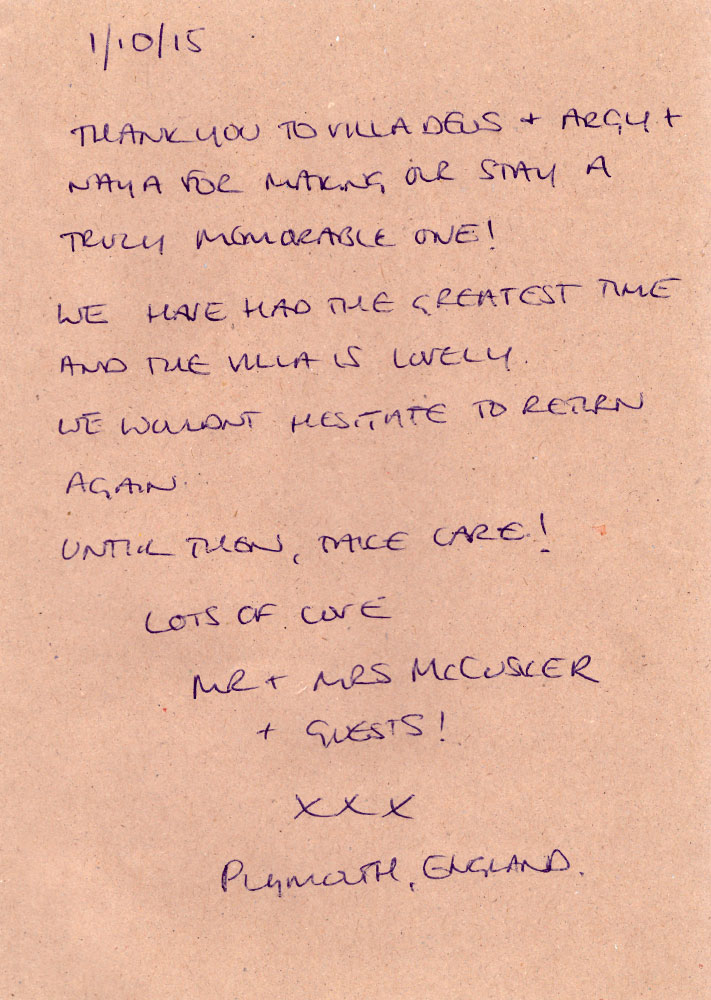 1/10/15
THANK YOU TO VILLA DEUS + ARGY +
NAYA FOR MAKING OUR STAY A
TRULY MEMORABLE ONE!
WE HAVE HAD THE GREATEST TIME
AND THE VILLA IS LOVELY.
WE WOULDNT HESITATE TO RETURN
AGAIN.
UNTIL THEN, TAKE CARE!
LOTS OF LOVE
MR + MRS McCUSKER
+ GUESTS!
XXX
PLYMOUTH, ENGLAND.